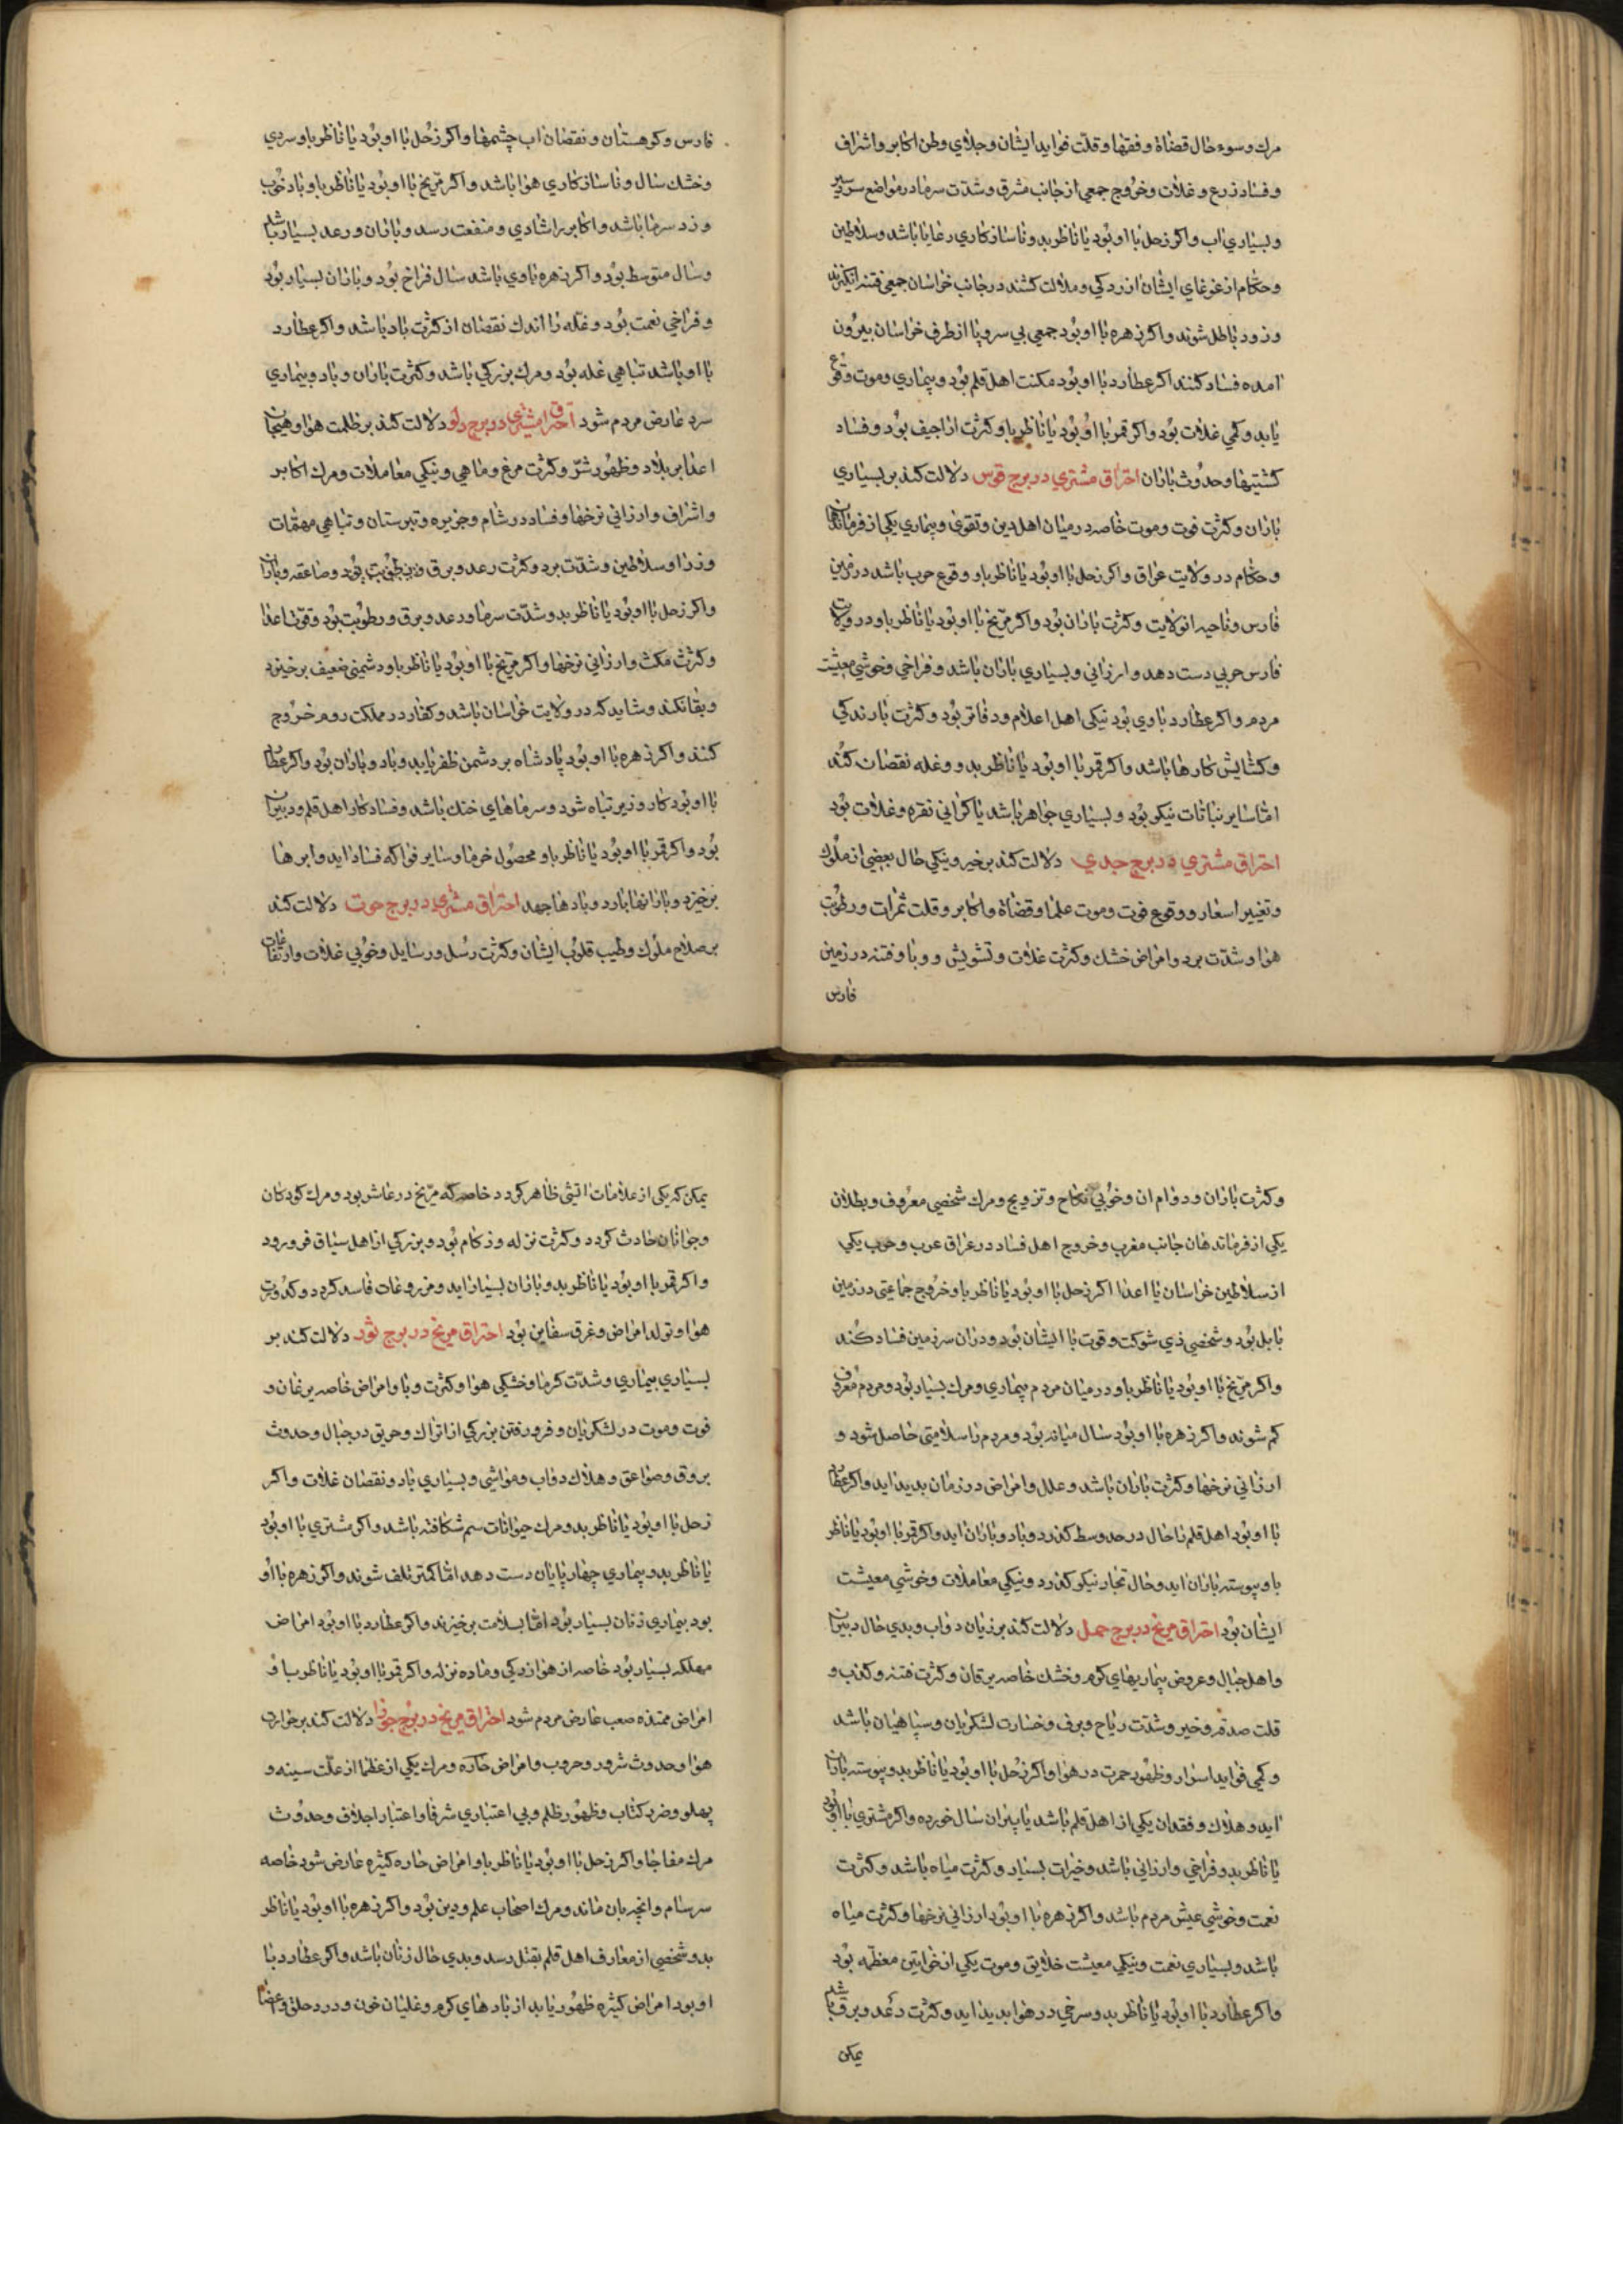 مرك وسوء حال قضاة و فقها و قلت فوايد ايشان و جلاي وطن اكابر و اشراف
و فساد زرع و غلات و خروج جمعي از جانب مشرق و شدت سرما در مواضع سردسير
و بسياري اب و اكر زحل با او بود يا ناظر بدو ناسازكاري رعايا باشد و سلاطين
و حكام از غوغاي ايشان ازردكي و ملالت كشند در جانب خراسان جمعي فتنه انكيزند
و زود باطل شوند و اكر زهره با او بود جمعي بي سر و پا از طرف خراسان بيرون
امده فساد كنند اكر عطارد با او بود مكنت اهل قلم بود و بيماري و موت وقوع
يابد و كمي غلات بود و اكر قمر با او بود يا ناظر باو كثرت اراجيف بود و فساد
كشتيها و حدوث باران احتراق مشتري در برج قوس دلالت كند بر بسياري
باران و كثرت فوت و موت خاصه در ميان اهل دين و تقوى و بيماري يكي از فرماندهان
و حكام در ولايت عراق و اكر زحل با او بود يا ناظر باو وقوع حرب باشد در زمين
فارس و ناحيه ان ولايت و كثرت باران بود و اكر مريخ با او بود يا ناظر باو در ولايت
فارس حربي دست دهد و ارزاني و بسياري باران باشد و فراخي و خوشي معيشت
مردم و اكر عطارد باوي بود نيكي اهل اعلام و دفاتر بود و كثرت بارندكي
و كشايش كارها باشد و اكر قمر با او بود يا ناظر بدو و غله نقصان كند
امّا ساير نباتات نيكو بود و بسياري جواهر باشد يا كراني نقره و غلات بود
احتراق مشتري در برج جدي دلالت كند بر خير و نيكي حال بعضي از ملوك
و تغيير اسعار و وقوع فوت و موت علما و قضاة و اكابر و قلت ثمرات و رطوبت
هوا و شدت برد و امراض خشك و كثرت غلات و تشويش و وبا و فتنه در زمين
فارس
فارس و كوهستان و نقصان اب چشمها و اكر زحل با او بود يا ناظر باو سردي
و خشك سال و ناسازكاري هوا باشد و اكر مريخ با او بود يا ناظر باو باد خوب
و زد سرما باشد و اكابر را شادي و منفعت رسد و باران و رعد بسيار باشد
و سال متوسط بود و اكر زهره باوي باشد سال فراخ بود و باران بسيار بود
و فراخي نعمت بود و غله را اندك نقصان از كثرت باد باشد و اكر عطارد
با او باشد تباهي غله بود و مرك بزركي باشد و كثرت باران و باد و بيماري
سرد عارض مردم شود احتراق مشتري در برج دلو دلالت كند بر ظلمت هوا و هيجان
اعدا بر بلاد و ظهور شرّ و كثرت مرغ و ماهي و نيكي معاملات و مرك اكابر
و اشراف و ارزاني نرخها و فساد در شام و جزيره و تبرستان و تباهي مهمّات
وزرا و سلاطين و شدّت برد و كثرت رعد و برق و رطوبت بود و صاعقه و باران
و اكر زحل با او بود يا ناظر بدو شدّت سرما و رعد و برق و رطوبت بود و قوت اعدا
و كثرت مكث و ارزاني نرخها و اكر مريخ با او بود يا ناظر باو دشمني ضعيف برخيزد
و بقا نكند و شايد كه در ولايت خراسان باشد و كفار در مملكت روم خروج
كنند و اكر زهره با او بود پادشاه بر دشمن ظفر يابد و باد و باران بود و اكر عطارد
با او بود كار وزير تباه شود و سرماهاي خنك باشد و فساد كار اهل قلم و دبيران
بود و اكر قمر با او بود يا ناظر باو محصول خرما و ساير فواكه فساد ايد و ابرها
برخيزد و بارانها بارد و بادها جهد احتراق مشتري در برج حوت دلالت كند
بر صلاح ملوك و طيب قلوب ايشان و كثرت رسل و رسايل و خوبي غلات و ارتفاعات
و كثرت باران و دوام ان و خوبي نكاح و تزويج و مرك شخصي معروف و بطلان
يكي از فرماندهان جانب مغرب و خروج اهل فساد در عراق عرب و حرب يكي
از سلاطين خراسان با اعدا اكر زحل با او بود يا ناظر باو خروج جماعتي در زمين
بابل بود و شخصي ذي شوكت و قوت با ايشان بود و دران سرزمين فساد كند
و اكر مريخ با او بود يا ناظر باو در ميان مردم بيماري و مرك بسيار بود و مردم معروف
كم شوند و اكر زهره با او بود سال ميانه بود و مردم را سلامتي حاصل شود و
ارزاني نرخها و كثرت باران باشد و علل و امراض در زمان بديد ايد و اكر عطارد
با او بود اهل قلم را حال در حد وسط كذرد و باد و باران ايد و اكر قمر با او بود يا ناظر
باو پيوسته باران ايد و حال تجار نيكو كذرد و نيكي معاملات و خوشي معيشت
ايشان بود احتراق مريخ در برج حمل دلالت كند بر زيان دواب و بدي حال دبيران
و اهل جبال و عروض بيماريهاي كرم و خشك خاصه يرقان و كثرت فتنه و كذب و
قلت صدقه و خير و شدّت رياح و برف و خسارت لشكريان و سپاهيان باشد
و كمي فوايد اسوار و ظهور حمرت در هوا و اكر زحل با او بود يا ناظر بدو پيوسته باران
ايد و هلاك و فقدان يكي از اهل قلم باشد يا پيران سال خورده و اكر مشتري با او بود
يا ناظر بدو فراخي و ارزاني باشد و خيرات بسيار و كثرت مياه باشد و كثرت
نعمت و خوشي عيش مردم باشد و اكر زهره با او بود ارزاني نرخها و كثرت مياه
باشد و بسياري نعمت و نيكي معيشت خلايق و موت يكي از خواتين معظمه بود
و اكر عطارد با او بود يا ناظر بدو سرخي در هوا بديد ايد و كثرت رعد و برق باشد
يمكن
يمكن كه يكي از علامات اتشي ظاهر كردد خاصه كه مريخ در عاشر بود و مرك كودكان
و جوانان حادث كردد و كثرت نزله و زكام بود و بزركي از اهل سياق فرو رود
و اكر قمر با او بود يا ناظر بدو باران بسيار ايد و مزروعات فاسد كردد و كدورت
هوا و تولد امراض و غرق سفاين بود احتراق مريخ در برج ثور دلالت كند بر
بسياري بيماري و شدّت كرما و خشكي هوا و كثرت وبا و امراض خاصه يرغان و
فوت و موت در لشكريان و فرو رفتن بزركي از اتراك و حريق در جبال و حدوث
بروق و صواعق و هلاك دواب و مواشي و بسياري باد و نقصان غلات و اكر
زحل با او بود يا ناظر بدو مرك حيوانات سم شكافته باشد و اكر مشتري با او بود
يا ناظر بدو بيماري چهارپايان دست دهد امّا كمتر تلف شوند و اكر زهره با او
بود بيماري زنان بسيار بود امّا بسلامت برخيزند و اكر عطارد با او بود امراض
مهلكه بسيار بود خاصه از هوازدكي و ماده نزله و اكر قمر با او بود يا ناظر باو
امراض ممتدّه صعب عارض مردم شود احتراق مريخ در برج جوزا دلالت كند بر حرارت
هوا و حدوث شرور و حروب و امراض حاره و مرك يكي از عظما از علّت سينه و
پهلو و ضرر كتّاب و ظهور ظلم و بي اعتباري شرفا و اعتبار اجلاف و حدوث
مرك مفاجا و اكر زحل با او بود يا ناظر باو امراض حاره كثيره عارض شود خاصه
سرسام و انچه بان ماند و مرك اصحاب علم و دين بود و اكر زهره با او بود يا ناظر
بدو شخصي از معارف اهل قلم بقتل رسد و بدي حال زنان باشد و اكر عطارد با
او بود امراض كثيره ظهور يابد از بادهاي كرم و غليان خون و درد حلق و اعضا